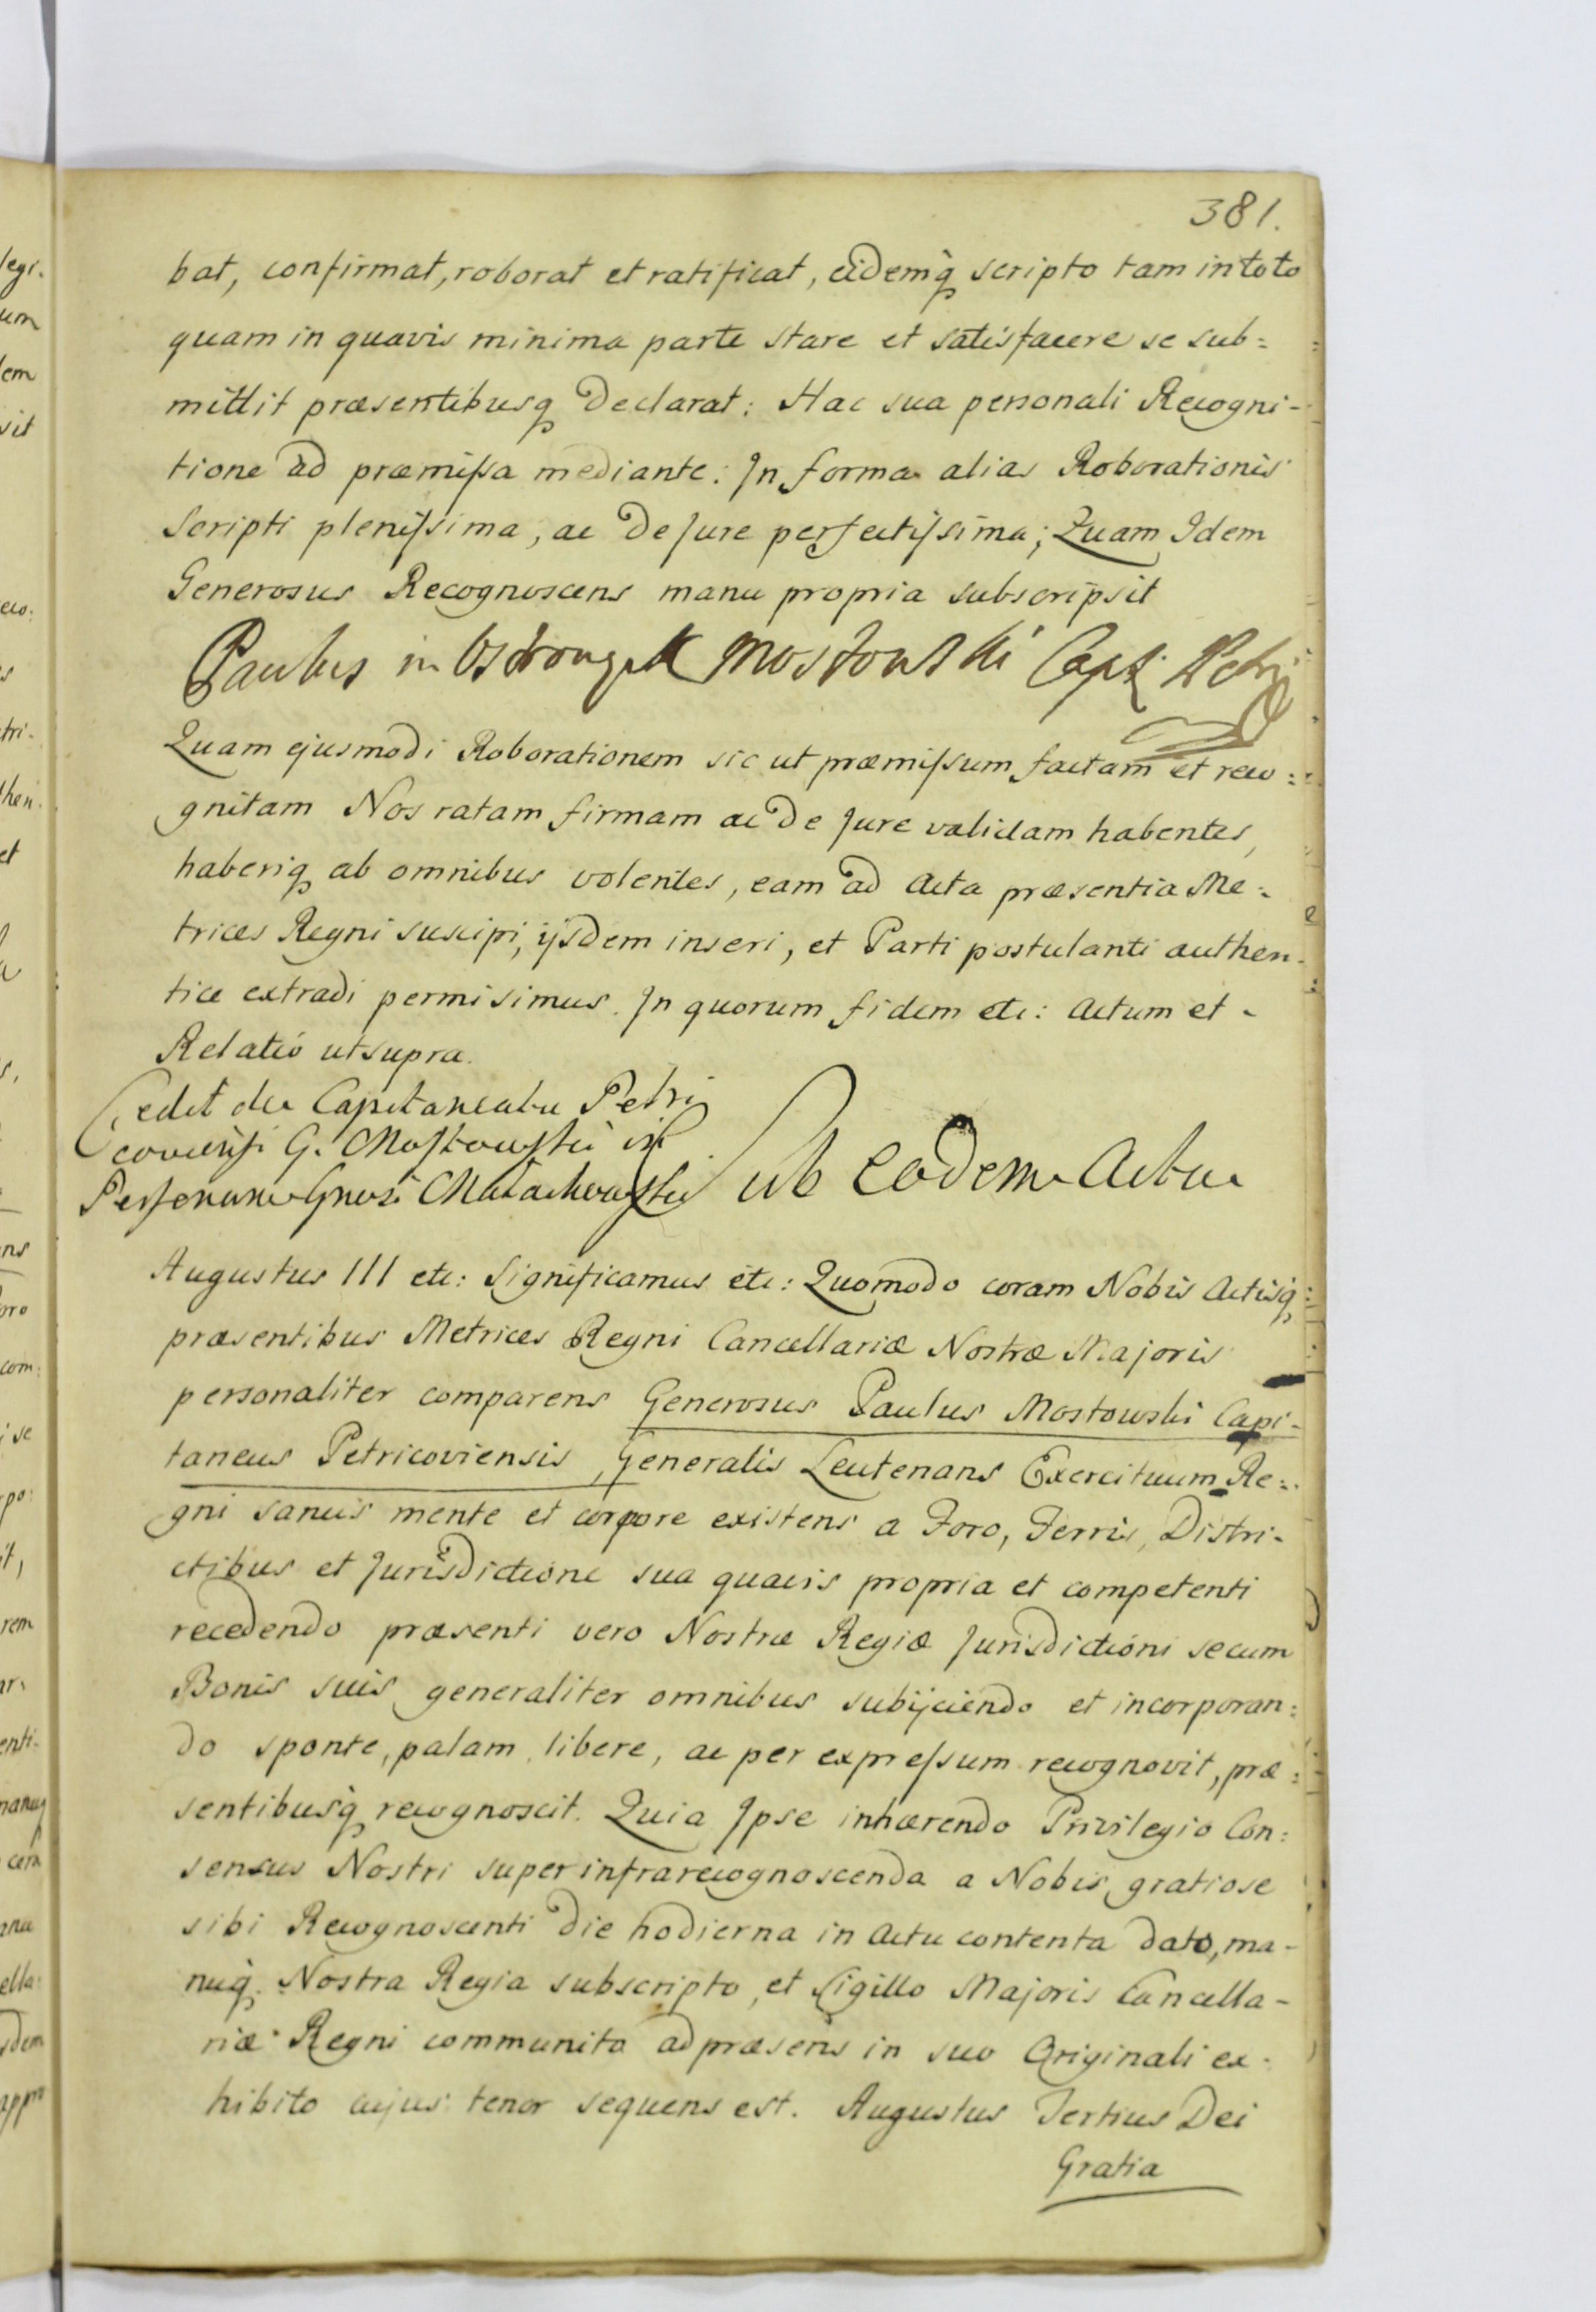 381.
bat, confirmat, roborat et ratificat, eidemq scripto tam in toto
quam in quavis minima parte stare et satisfacere se sub=
mittit præsentibusq Declarat: Hac sua personali Recogni-
tione ad præmissa mediante: In forma alias Roborationis
Scripti plenissima, ac De Jure perfectissima; Quam Idem
Generosus Recognoscens manu propria subscripsit
Paulus in Mostowski Capt: Petri
Quam ejusmodi Roborationem sic ut præmissum factam et reco=
gnitam Nos ratam firmam ac De Jure validam habentes,
haberiq ab omnibus volentes, eam ad Acta præsentia Me=
trices Regni suscipi, ijsdem inseri, et Parti postulanti authen-
tice extradi permisimus. In quorum fidem etc: Actum et -
Relatio ut supra.
Cedit de Capitaneatu Petri
coviensi G. Mostowski in
Personam Gnosi Małachowski
Sub eodem Actu
Augustus III etc: Significamus etc: Quomodo coram Nobis Actisq:
præsentibus Metrices Regni Cancellariæ Nostræ Majoris
personaliter comparens Generosus Paulus Mostowski Capi-
taneus Petricoviensis, Generalis Leutenans Exercituum Re=
gni sanus mente et corpore existens a Foro, Terris, Distri-
ctibus et Jurisdictione sua quavis propria et competenti
recedendo præsenti vero Nostræ Regiæ Jurisdictioni se cum
Bonis suis generaliter omnibus subijciendo et incorporan=
do sponte, palam, libere, ac per expressum recognovit, præ=
sentibusq recognoscit. Quia Ipse inhærendo Privilegio Con=
sensus Nostri super infrarecognoscenda a Nobis gratiose
sibi Recognoscenti Die hodierna in Actu contenta dato, ma-
nuq. Nostra Regia subscripto, et Sigillo Majoris Cancella-
riæ Regni communito ad præsens in suo Originali ex-
hibito cujus tenor sequens est. Augustus Tertius Dei
Gratia